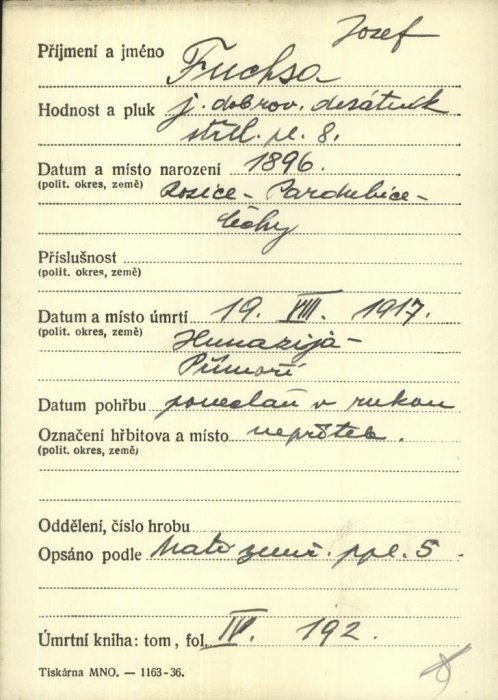 Josef
Příjmení a jméno Fuchsa
Hodnost a pluk j. dobrov. desátník
střel. pl. 8.
Datum a místo narození 1896.
(polit. okres, země) Rosice - Pardubice -
Čechy
Příslušnost
(polit. okres, země)
Datum a místo úmrtí 19. VIII. 1917.
(polit. okres, země)
Přímoří
Datum pohřbu ponechán v rukou
Označení hřbitova a místo nepřítele.
(polit. okres, země)
Oddělení, číslo hrobu
Opsáno podle Matr. zemř. ppl. 5.
Úmrtní kniha: tom, fol. IV. 192.
Tiskárna MNO. — 1163-36.